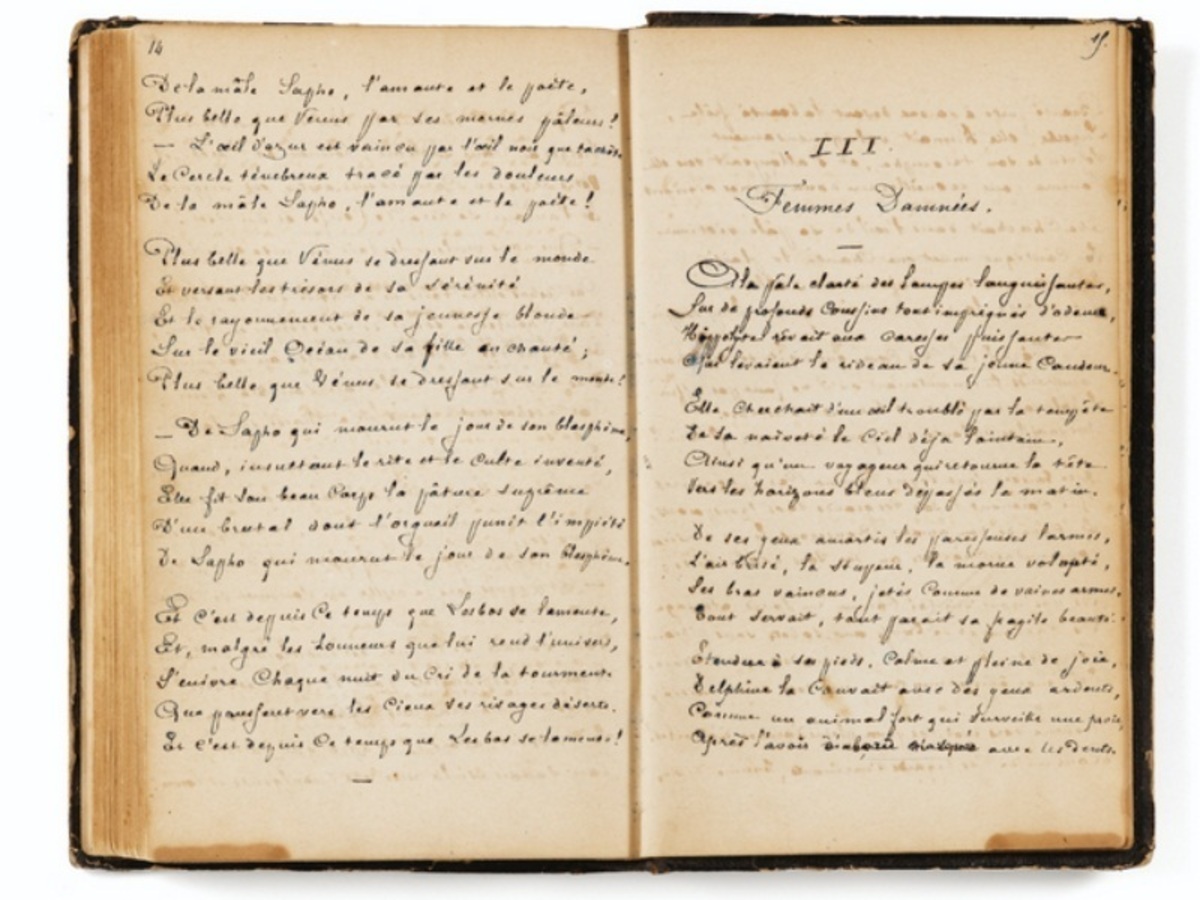 14
De la mâle Sapho, l'amante et le poëte,
Plus belle que Vénus par ses mornes pâleurs !
— L'œil d'azur est vaincu par l'œil noir que tachète
Le Cercle ténébreux tracé par les douleurs
De la mâle Sapho, l'amante et le poëte !
Plus belle que Vénus se dressant sur le monde
Et versant les trésors de sa sérénité
Et le rayonnement de sa jeunesse blonde
Sur le vieil Océan de sa fille enchanté ;
Plus belle que Vénus se dressant sur le monde !
— De Sapho qui mourut le jour de son blasphème,
Quand, insultant le rite et le culte inventé,
Elle fit son beau Corps la pâture suprême
D'un brutal dont l'orgueil punit l'impiété
De Sapho qui mourut le jour de son blasphème.
Et c'est depuis Ce temps que Lesbos se lamente,
Et, malgré les honneurs que lui rend l'univers,
S'enivre Chaque nuit du Cri de la tourmente
Que poussent vers les Cieux ses rivages déserts.
Et c'est depuis Ce temps que Lesbos se lamente !
15
III.
Femmes Damnées.
A la pâle clarté des Lampes languissantes,
Sur de profonds Coussins tout imprégnés d'odeur,
Hippolyte rêvait aux Caresses puissantes
Qui levaient le rideau de sa jeune Candeur.
Elle Cherchait d'un œil troublé par la tempête
De sa naïveté le Ciel déja lointain,
Ainsi qu'un voyageur qui retourne la tête
Vers les horizons bleus dépassés le matin.
De ses yeux amortis les paresseuses larmes,
L'air brisé, la stupeur, la morne volupté,
Ses bras vaincus, jetés Comme de vaines armes,
Tout servait, tout parait sa fragile beauté.
Étendue à ses pieds, Calme et pleine de joie,
Delphine la Couvait avec des yeux ardents,
Comme un animal fort qui surveille une proie,
Après l'avoir d'abord marquée avec les dents.